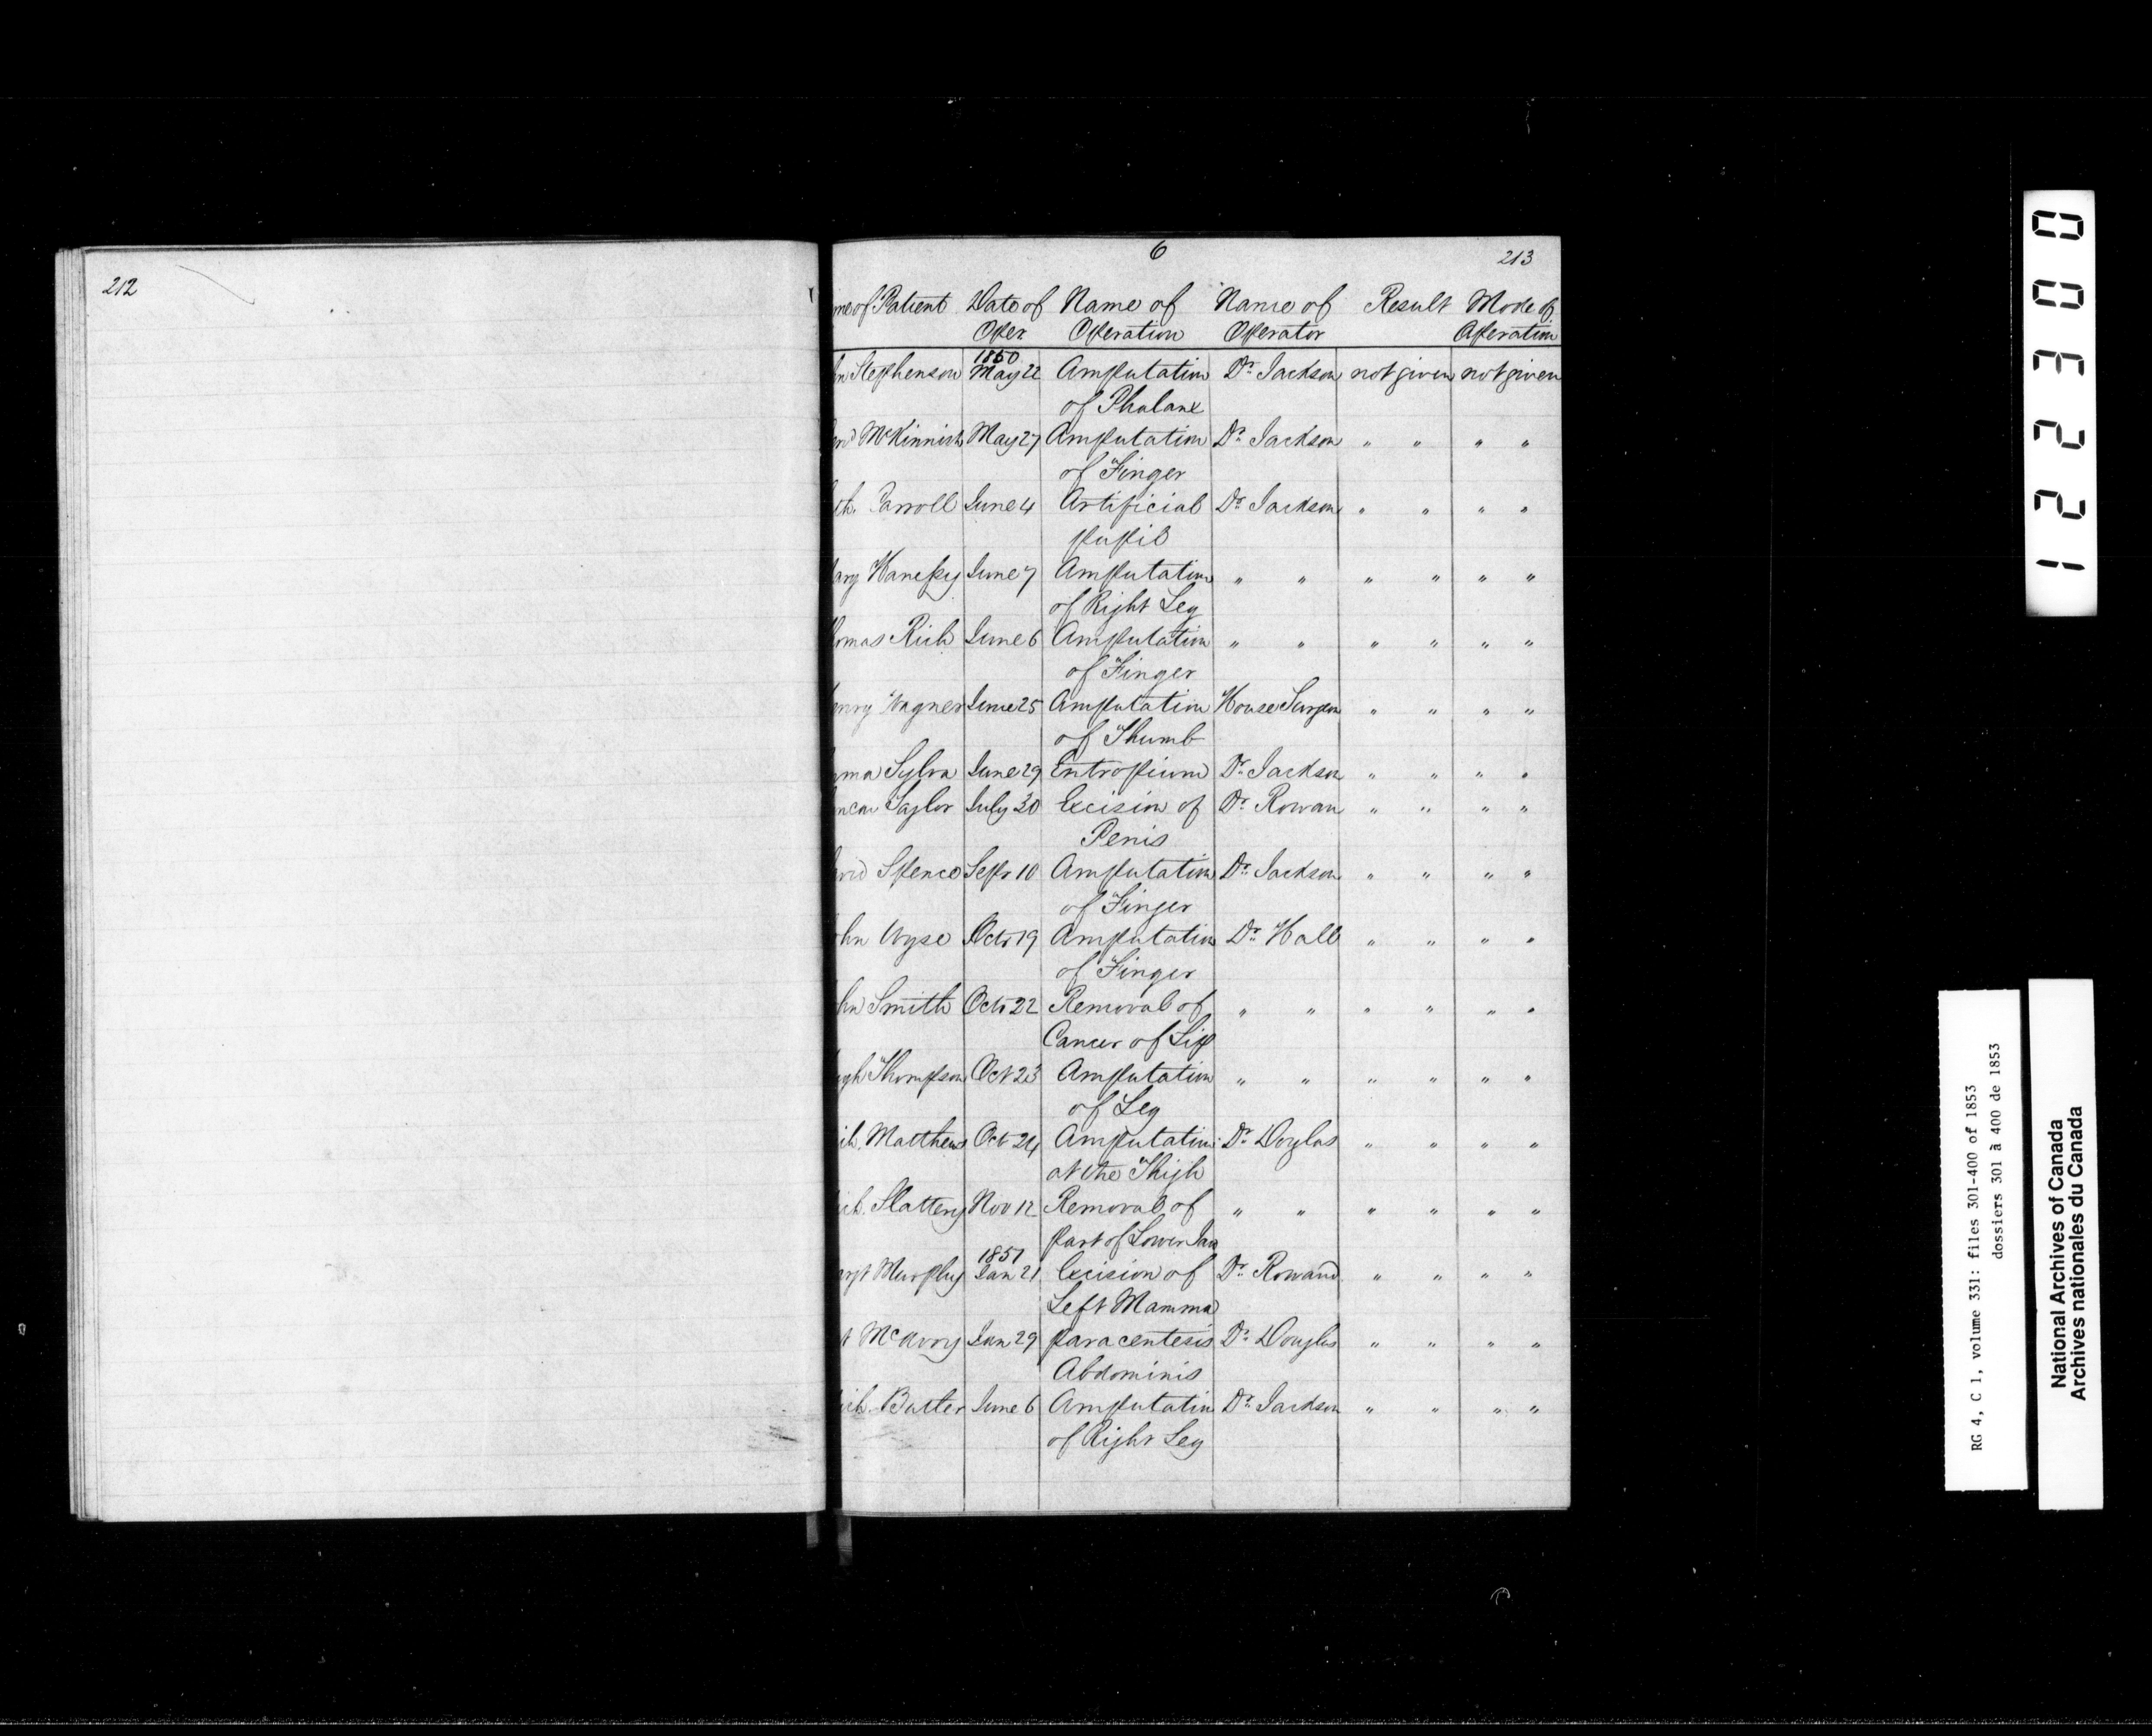 212
6
213
me of Patient Date of Name of Name of Result Mode of
Oper Operation Operator Operation
1850
n Stephenson May 22 Amputation Dr. Jackson not given not given
of Phalanx
McKinnish May 27 Amputation Dr. Jackson " " " "
of Finger
th. Carroll June 4 Artificial Dr. Jackson " " " "
pupil
ary June 7 Amputation " " " " " "
of Right Leg
omas Rich June 6 Amputation " " " " " "
of Finger
enry Wagner June 25 Amputation House Surgeon " " " "
of Thumb
ma Sylva June 29 Entropium Dr. Jackson " " " "
ncan Taylor July 30 Excision of Dr. Rowan " " " "
Penis
avid Spence Sept 10 Amputation Dr. Jackson " " " "
of Finger
ohn Wyse Oct 19 Amputation Dr. Hall " " " "
of Finger
hn Smith Oct 22 Removal of " " " " " "
Cancer of Lip
ugh Thompson Oct 23 Amputation " " " " " "
of Leg
ich. Matthews Oct 24 Amputation Dr. Douglas " " " "
at the Thigh
ich. Slattery Nov 12 Removal of " " " " " "
part of Lower Jaw
1851
argt Murphy Jan 21 Excision of Dr. Rowand " " " "
Left Mamma
t McAvoy Jan 29 paracentesis Dr. Douglas " " " "
Abdominis
ich. Butler June 6 Amputation Dr. Jackson " " " "
of Right Leg
122300
RG 4, C 1, volume 331: files 301-400 of 1853
dossiers 301 à 400 de 1853
National Archives of Canada
Archives nationales du Canada